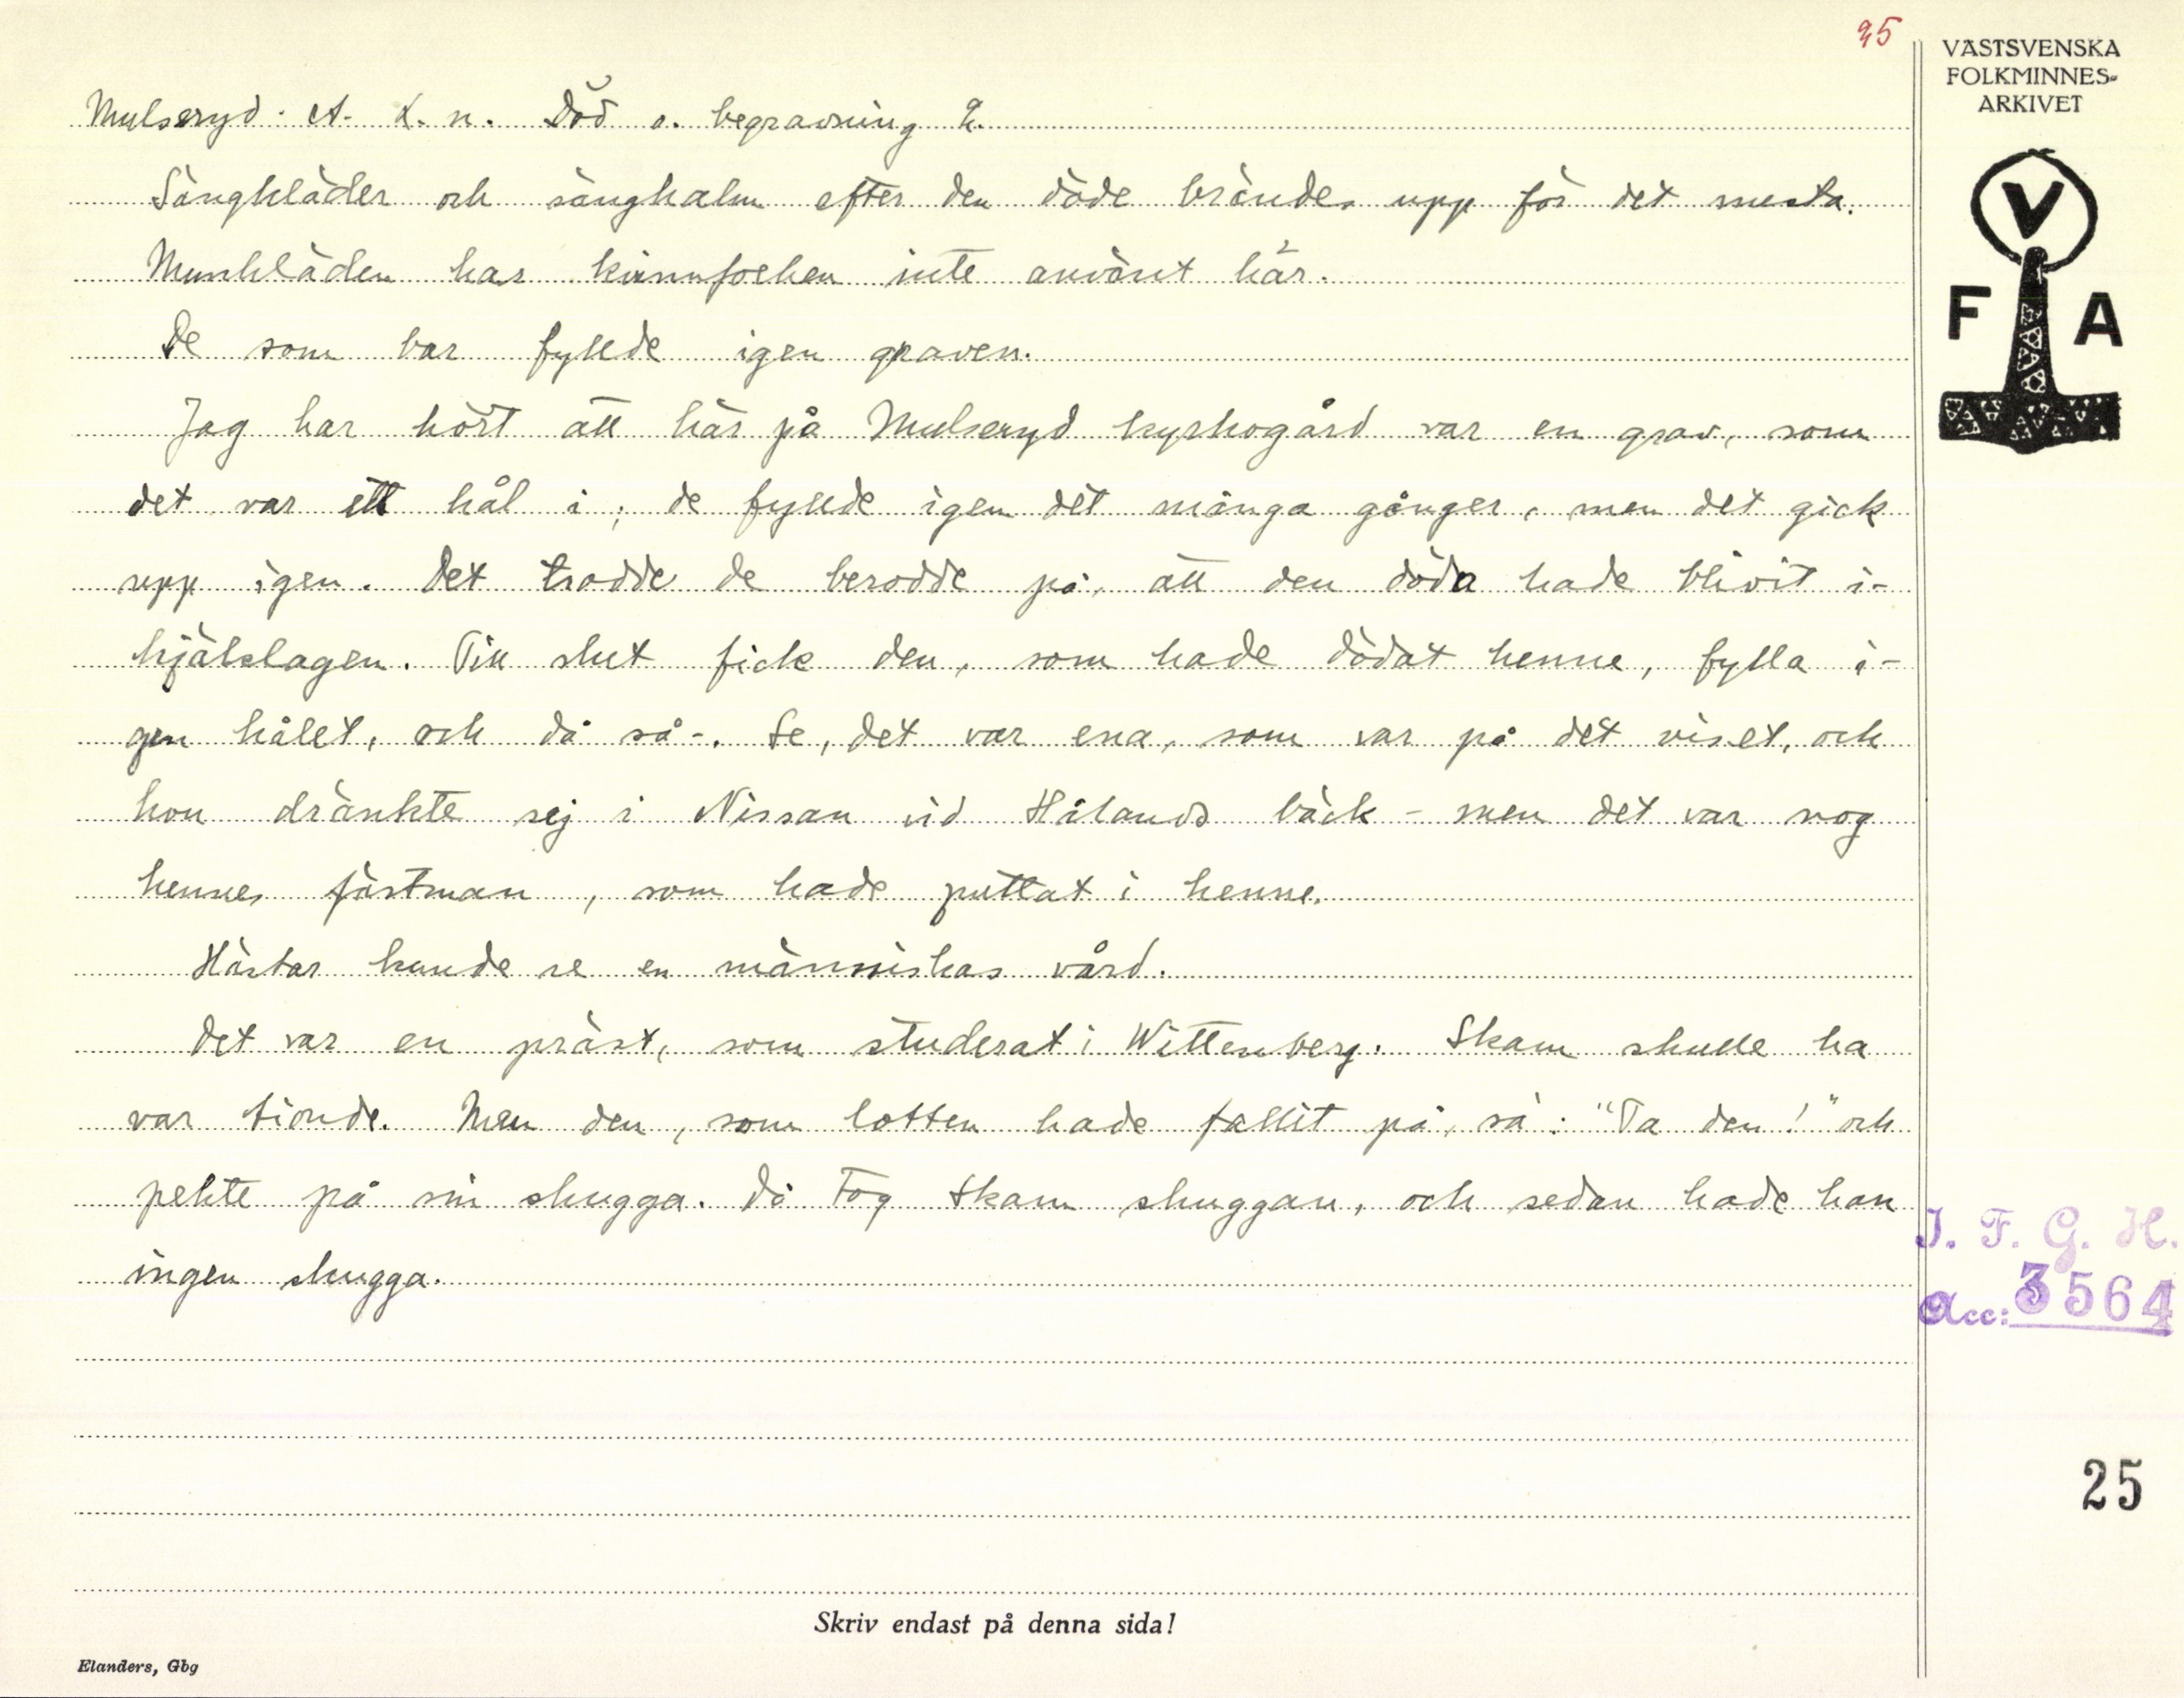 95
VÄSTSVENSKA
FOLKMINNES-
ARKIVET
V
F A
Mulseryd. A. L. n. Död o. begravning 2.
Sängkläder och sänghalm efter den döde brändes upp för det mesta.
Munkläden har kvinnfolken inte använt här.
De som bar fyllde igen graven.
Jag har hört att här på Mulseryd kyrkogård var en grav, som
det var ett hål i; de fyllde igen det många gånger, men det gick
upp igen. Det trodde de berodde på, att den döda hade blivit i-
hjälslagen. Till slut fick den, som hade dödat henne, fylla i-
gen hålet, och då så-. Se, det var ena, som var på det viset, och
hon dränkte sej i Nissan vid Hålands bäck - men det var nog
hennes fästman, som hade puttat i henne.
Hästar kunde se en människas vård.
Det var en präst, som studerat i Wittenberg. Skam skulle ha
var tionde. Men den, som lotten hade fallit på, sa: "Ta den!" och
pekte på sin skugga. Då tog Skam skuggan, och sedan hade han
ingen skugga.
I. F. G. H.
Acc: 3564
25
Skriv endast på denna sida!
Elanders, Gbg